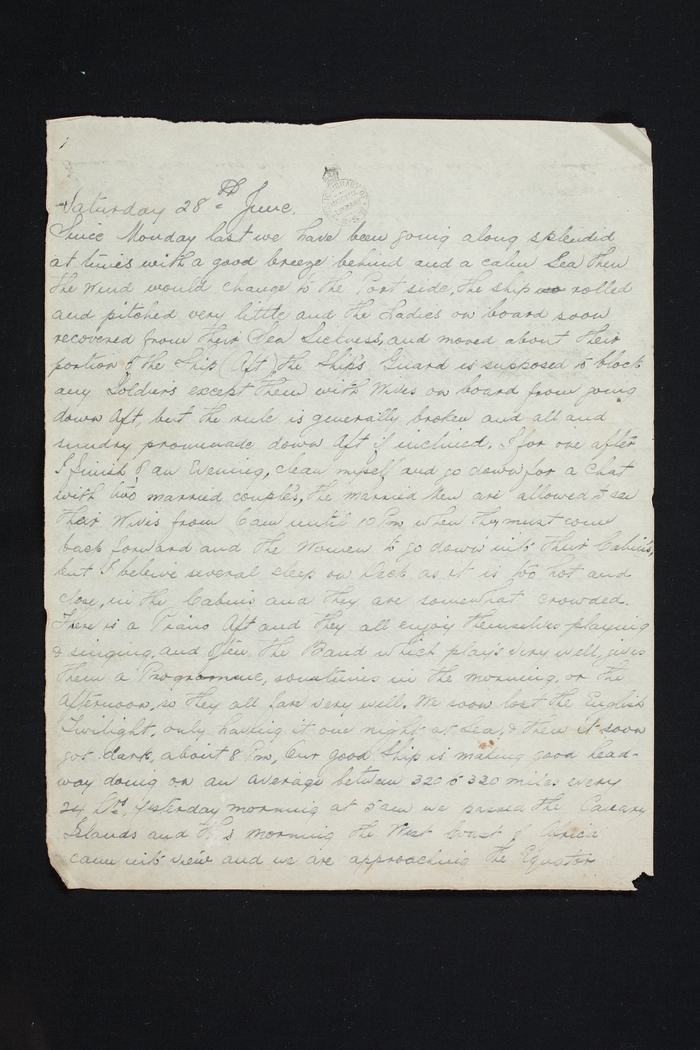 Saturday 28th June.
Since Monday last we have been going along splendid
at times with a good breeze behind and a calm Sea then
the wind would change to the Port side, the ship rolled
and pitched very little and the Ladies on board soon
recovered from their Sea Sickness, and moved about their
portion of the Ship (Aft) the Ship's Guard is supposed to block
any Soldiers except them with Wives on board from going
down Aft, but the rule is generally broken and all and
sundry promenade down Aft if inclined. I for one after
I finish of an Evening, clean myself and go down for a chat
with two married couples, the married Men are allowed to see
their Wives from 6am until 10 Pm when they must come
back forward and the Women to go down into their Cabins,
but I beleive several sleep on Deck as it is too hot and
close, in the Cabins and they are somewhat crowded.
There is a Piano Aft and they all enjoy themselves playing
& singing, and often the Band which plays very well, gives
them a Programme, sometimes in the morning, or the
Afternoon, so they all fare very well. We soon lost the English
Twilight, only having it one night at Sea, & then it soon
got dark, about 8 Pm, Our good Ship is making good head-
way doing on an average between 320 & 330 miles every
24 Hrs, Yesterday morning at 5am we passed the Canary
Islands and this morning the West Coast of Africa
came into view and we are approaching the Equator